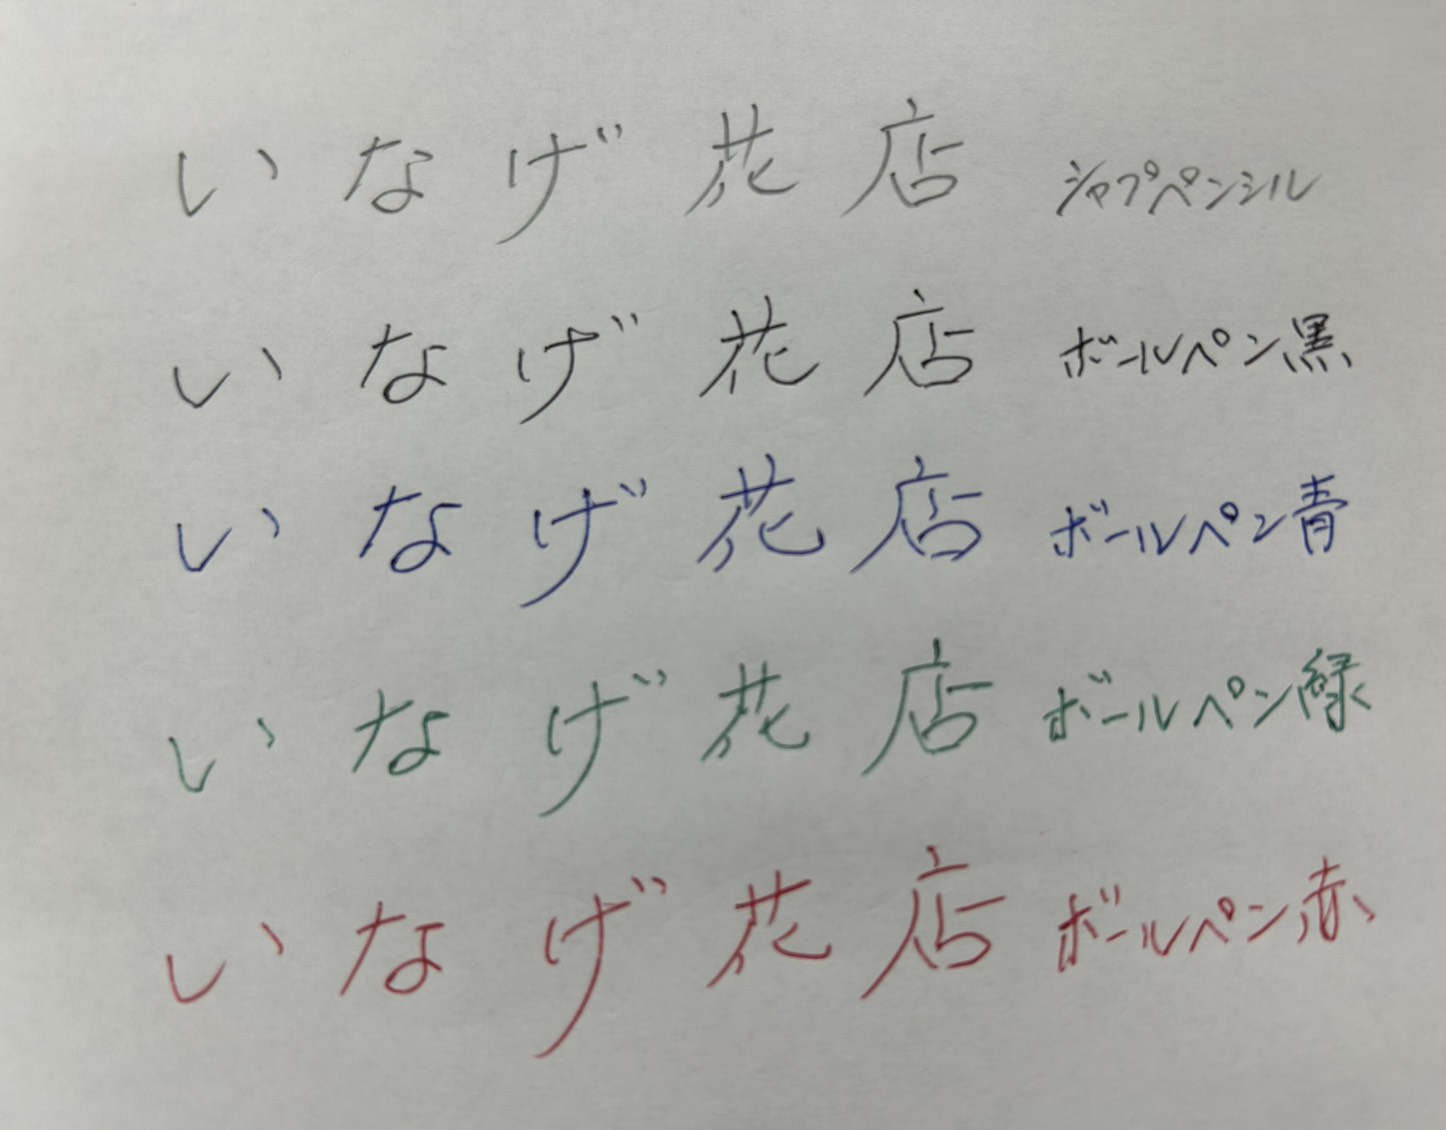 いなげ花店 シャープペンシル
いなげ花店 ボールペン黒
いなげ花店 ボールペン青
いなげ花店 ボールペン緑
いなげ花店 ボールペン赤